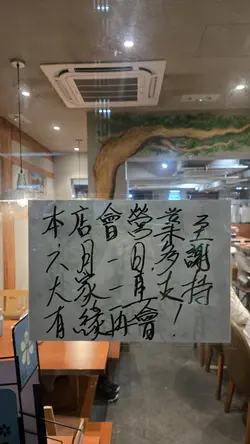 本店會營業至
六月一日,多謝
大家一直支持
有緣再會!